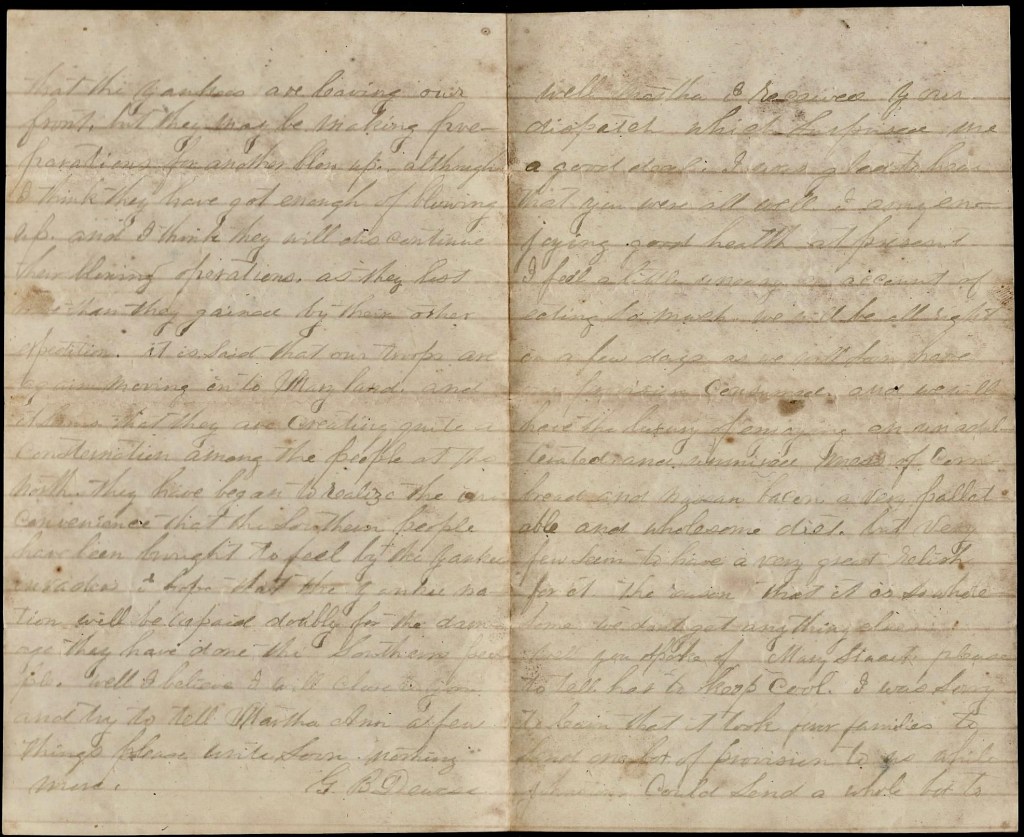 that the Yankees are leaving our
front, but they may be making pre-
parations for another blow up. although
I think they have got enough of blowing
up. and I think they will discontinue
their Mining operations. as they lost
more than they gained by their other
it is said that our troops are
again moving in to Mary land. and
that they are Creating quite a
Consternation among the people at the
North. they have began to realize the in
convenience that the Southern people
have been brought to feel by the Yankee
invaders I hope that the Yankee na
tion will be repaid doubly for the dam
age they have done the Southern peo
ple. well I believe I will close
and try to tell Martha Ann a few
things please write soon nothing
more. G B
well Martha I received your
dispatch which surprised me
a good deal. I was glad to hear
that you were all well. I am en-
joying good health at present
I feel a little uneasy on account of
eating to much. we will be all right
in a few days as we will soon have
our provision Consumed. and we will
have the luxury of enjoying an unadul
terated and mess of Corn
bread and bacon a very pallat
able and wholesome diet. but very
few seem to have a very great relish
for it the reason that it is so whole
some we dont get anything else
well you spoke of Mary please
to tell her to keep Cool. I was sorry
to learn that it took four families to
send one box of provision to us while
Could send a whole box to